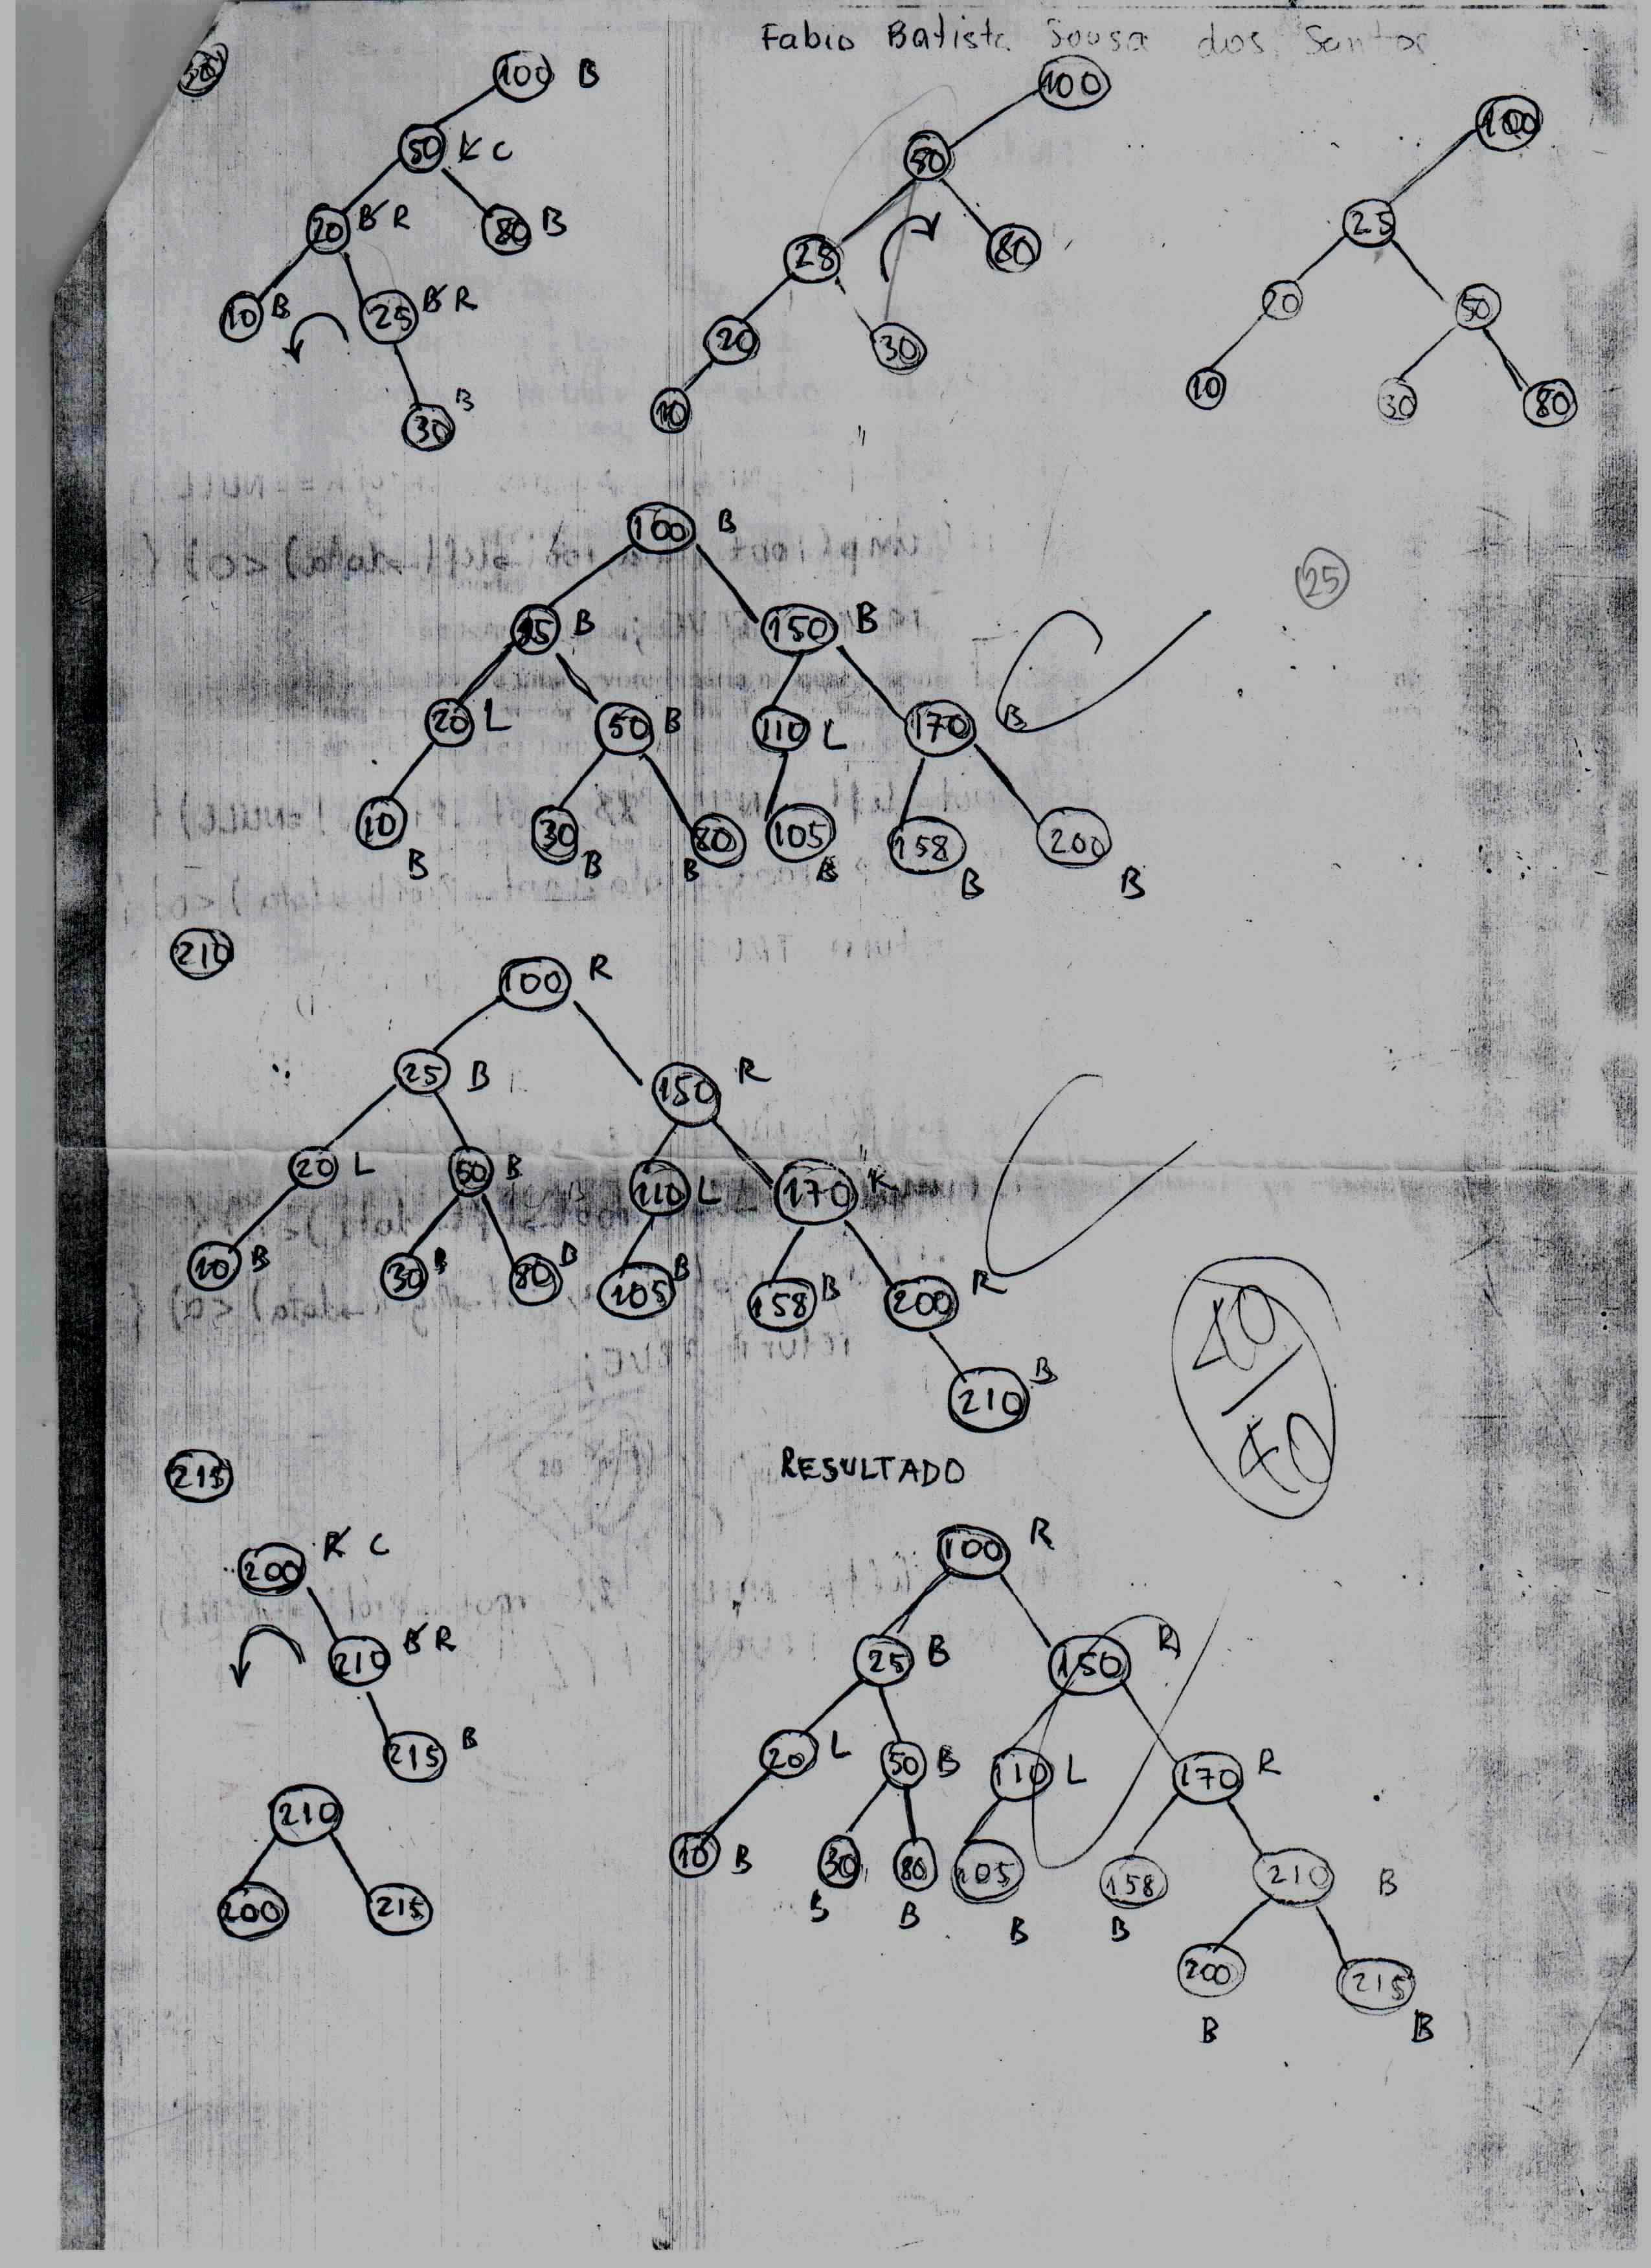 30
Fabio Batista Sousa dos Santos
100 B
50 L C
20 B R
80 B
10 B
25 B R
30 B
100
50
25
80
20
30
10
100
25
20
50
10
30
80
100 B
25
25 B
150 B
20 L
50 B
110 L
170 B
10 B
30 B
80 B
105 B
158 B
200 B
210
100 R
25 B
150 R
20 L
50 B
110 L
170 R
10 B
30 B
80 B
105 B
158 B
200 R
210 B
40/40
215
RESULTADO
200 R C
210 B R
215 B
210
200
215
100 R
25 B
150 R
20 L
50 B
110 L
170 R
10 B
30 B
80 B
105 B
158 B
210 B
200 B
215 B